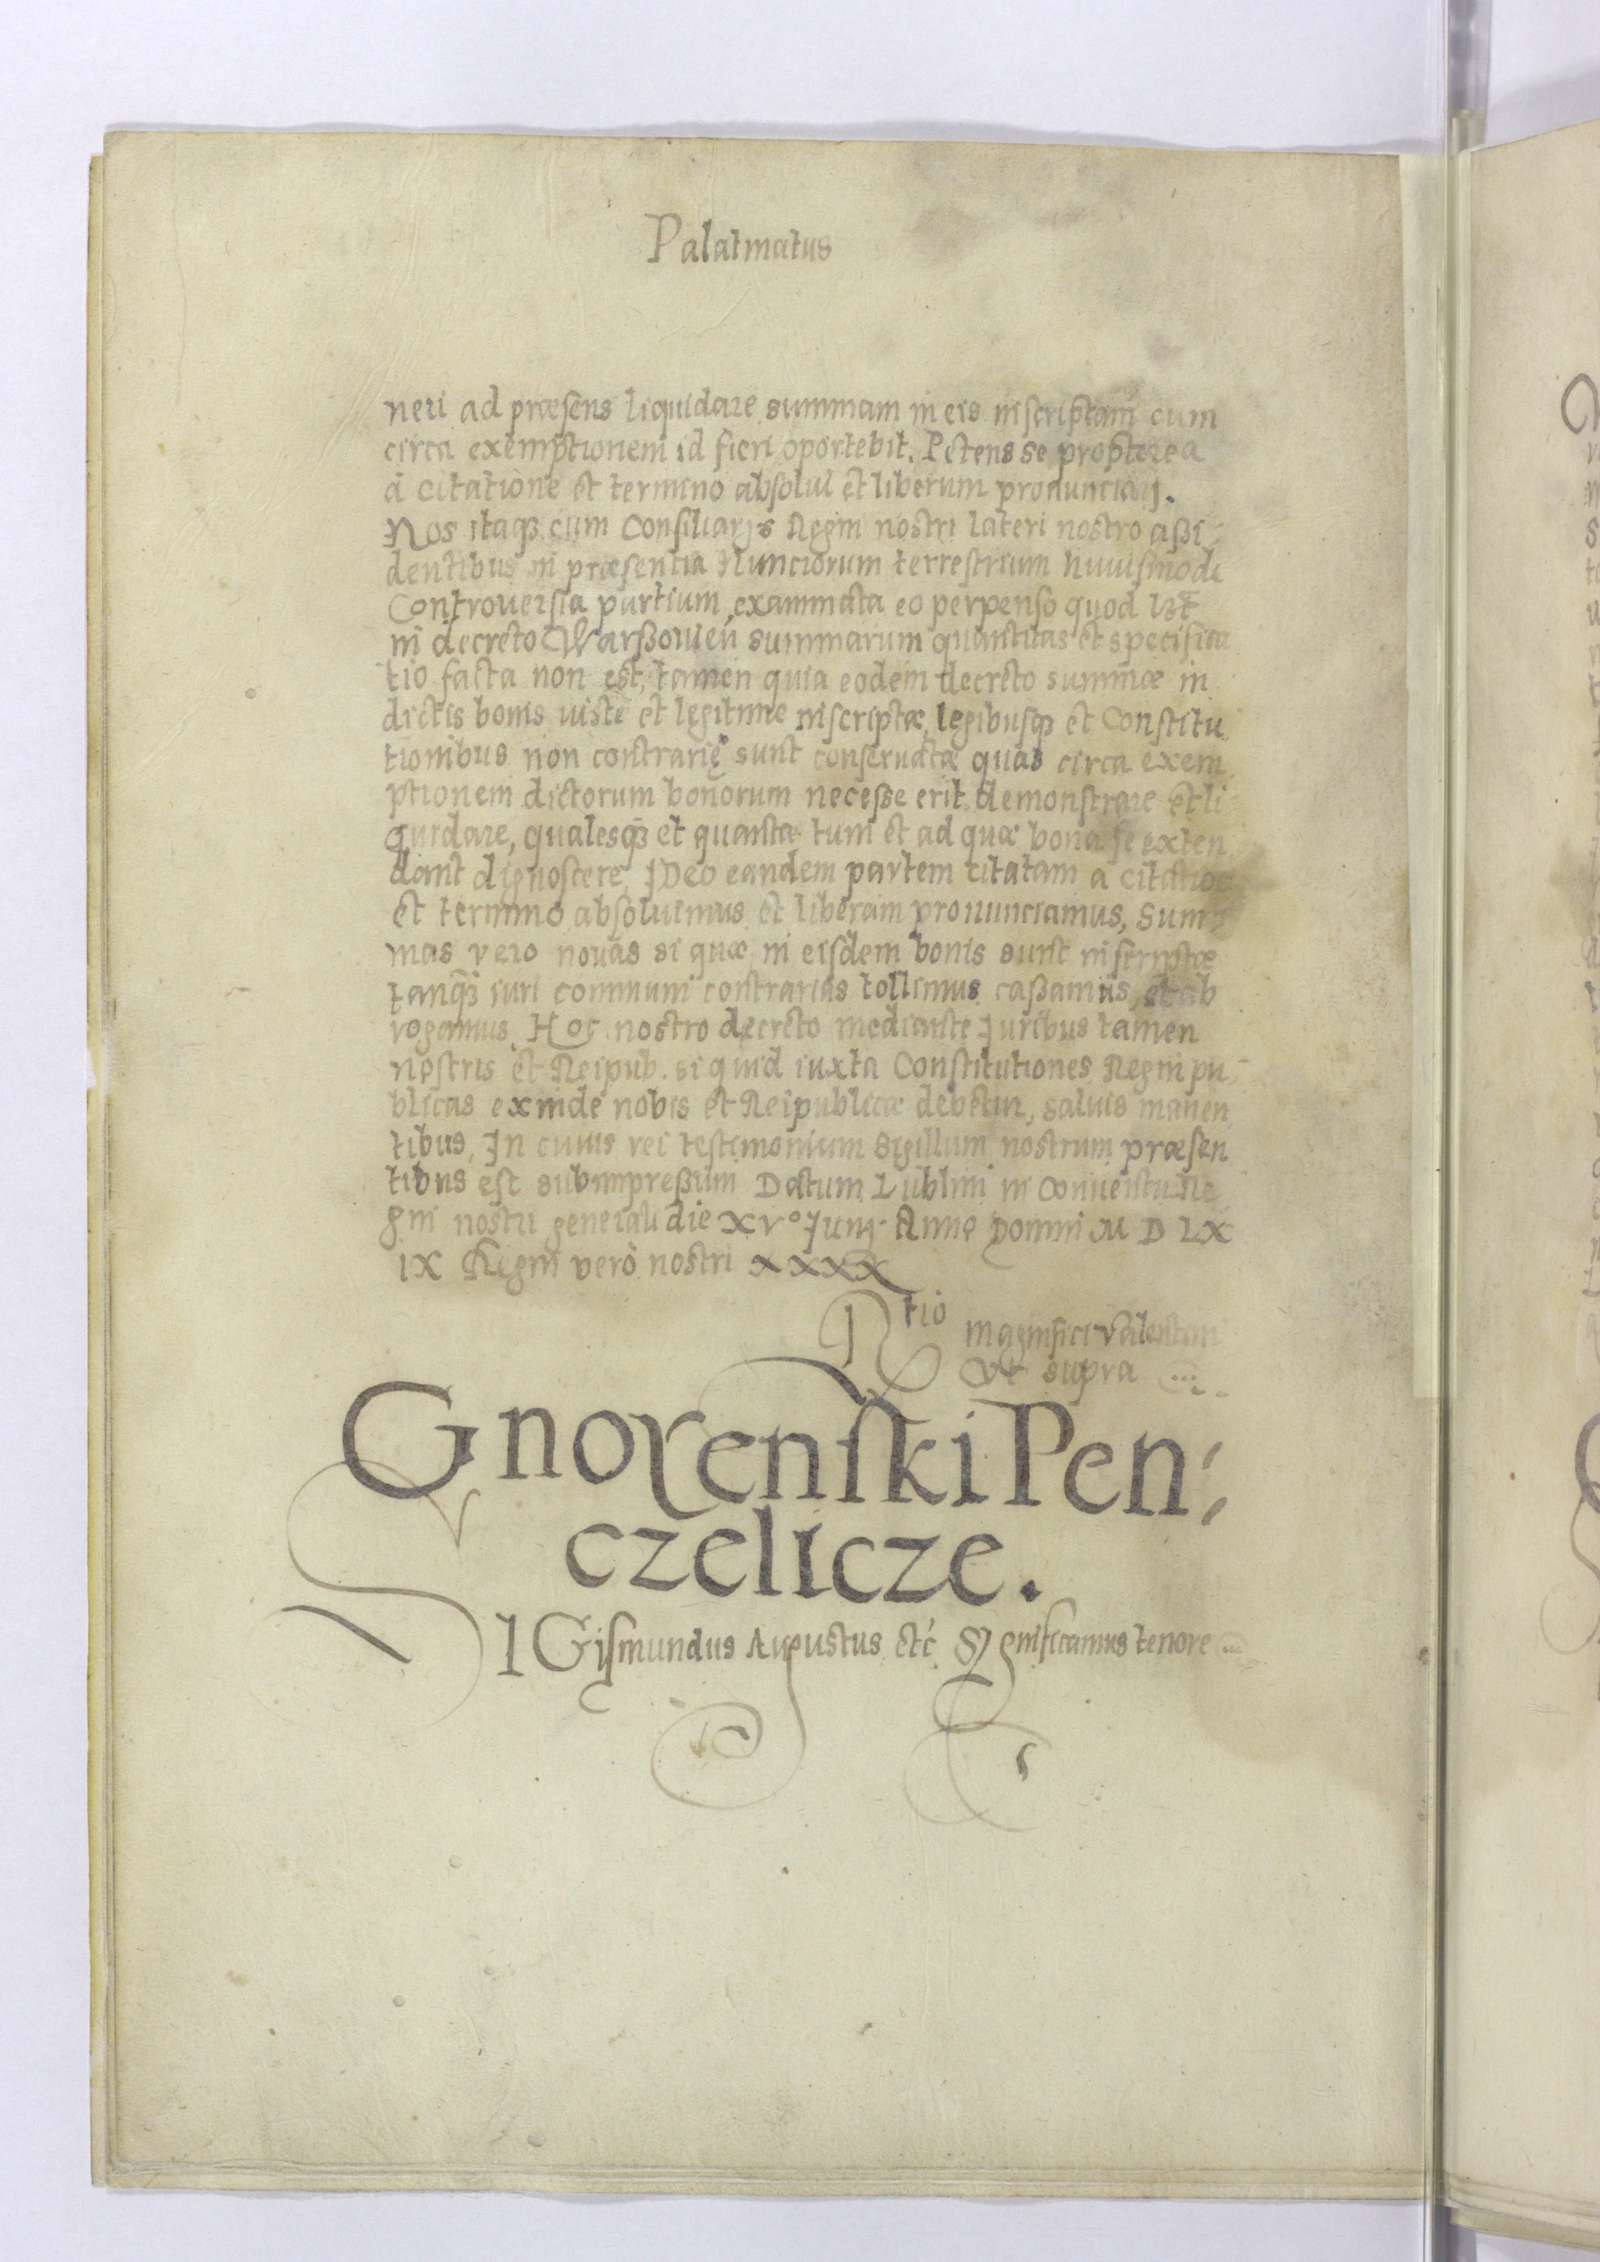 Palatinatus
neri ad præsens liquidare summam in eis inscriptam cum
circa exemptionem id fieri oportebit. Petens se propterea
à citatione et termino absolui et liberum pronunciarj.
Nos itaqꝫ cum Consiliarijs Regni nostri lateri nostro aßi-
dentibus in præsentia Nunciorum terrestrium huiusmodi
Controuersia partium examinata eo perpenso quod licet
in decreto Warßouien̄ summarum quantitas et specifica
tio facta non est, tamen quia eodem decreto summæ in
dictis bonis iuste et legitime inscriptæ, legibusqꝫ et Constitu
tionibus non contrarię sunt conseruatæ quas circa exem
ptionem dictorum bonorum neceße erit demonstrare et li
quidare, qualesqꝫ et quantæ tum et ad quæ bona se exten
dant dignoscere, Ideo eandem partem citatam a citatioe
et termino absoluimus et liberam pronunciamus, Sum-
mas vero nouas si quæ in eisdem bonis sunt inscriptæ
tanqꝫ iuri communi contrarias tollimus caßamus, et ab
rogamus. Hoc nostro decreto mediante Juribus tamen
nostris et Reipub. si quid iuxta Constitutiones Regni pu-
blicas exinde nobis et Reipublicæ debetur, saluis manen
tibus, In cuius rei testimonium Sigillum nostrum præsen
tibus est subimpreßum Datum Lublini in Conuentu Re
gni nostri generali die XVº Junij Anno Domini M D LX
IX Regni verò nostri XXXX
Rtio magnifici Valentini
Vt supra ...
Gnoyenſki Pen-
czelicze.
SIGiſmundus Augustus etć Significamus tenore ...